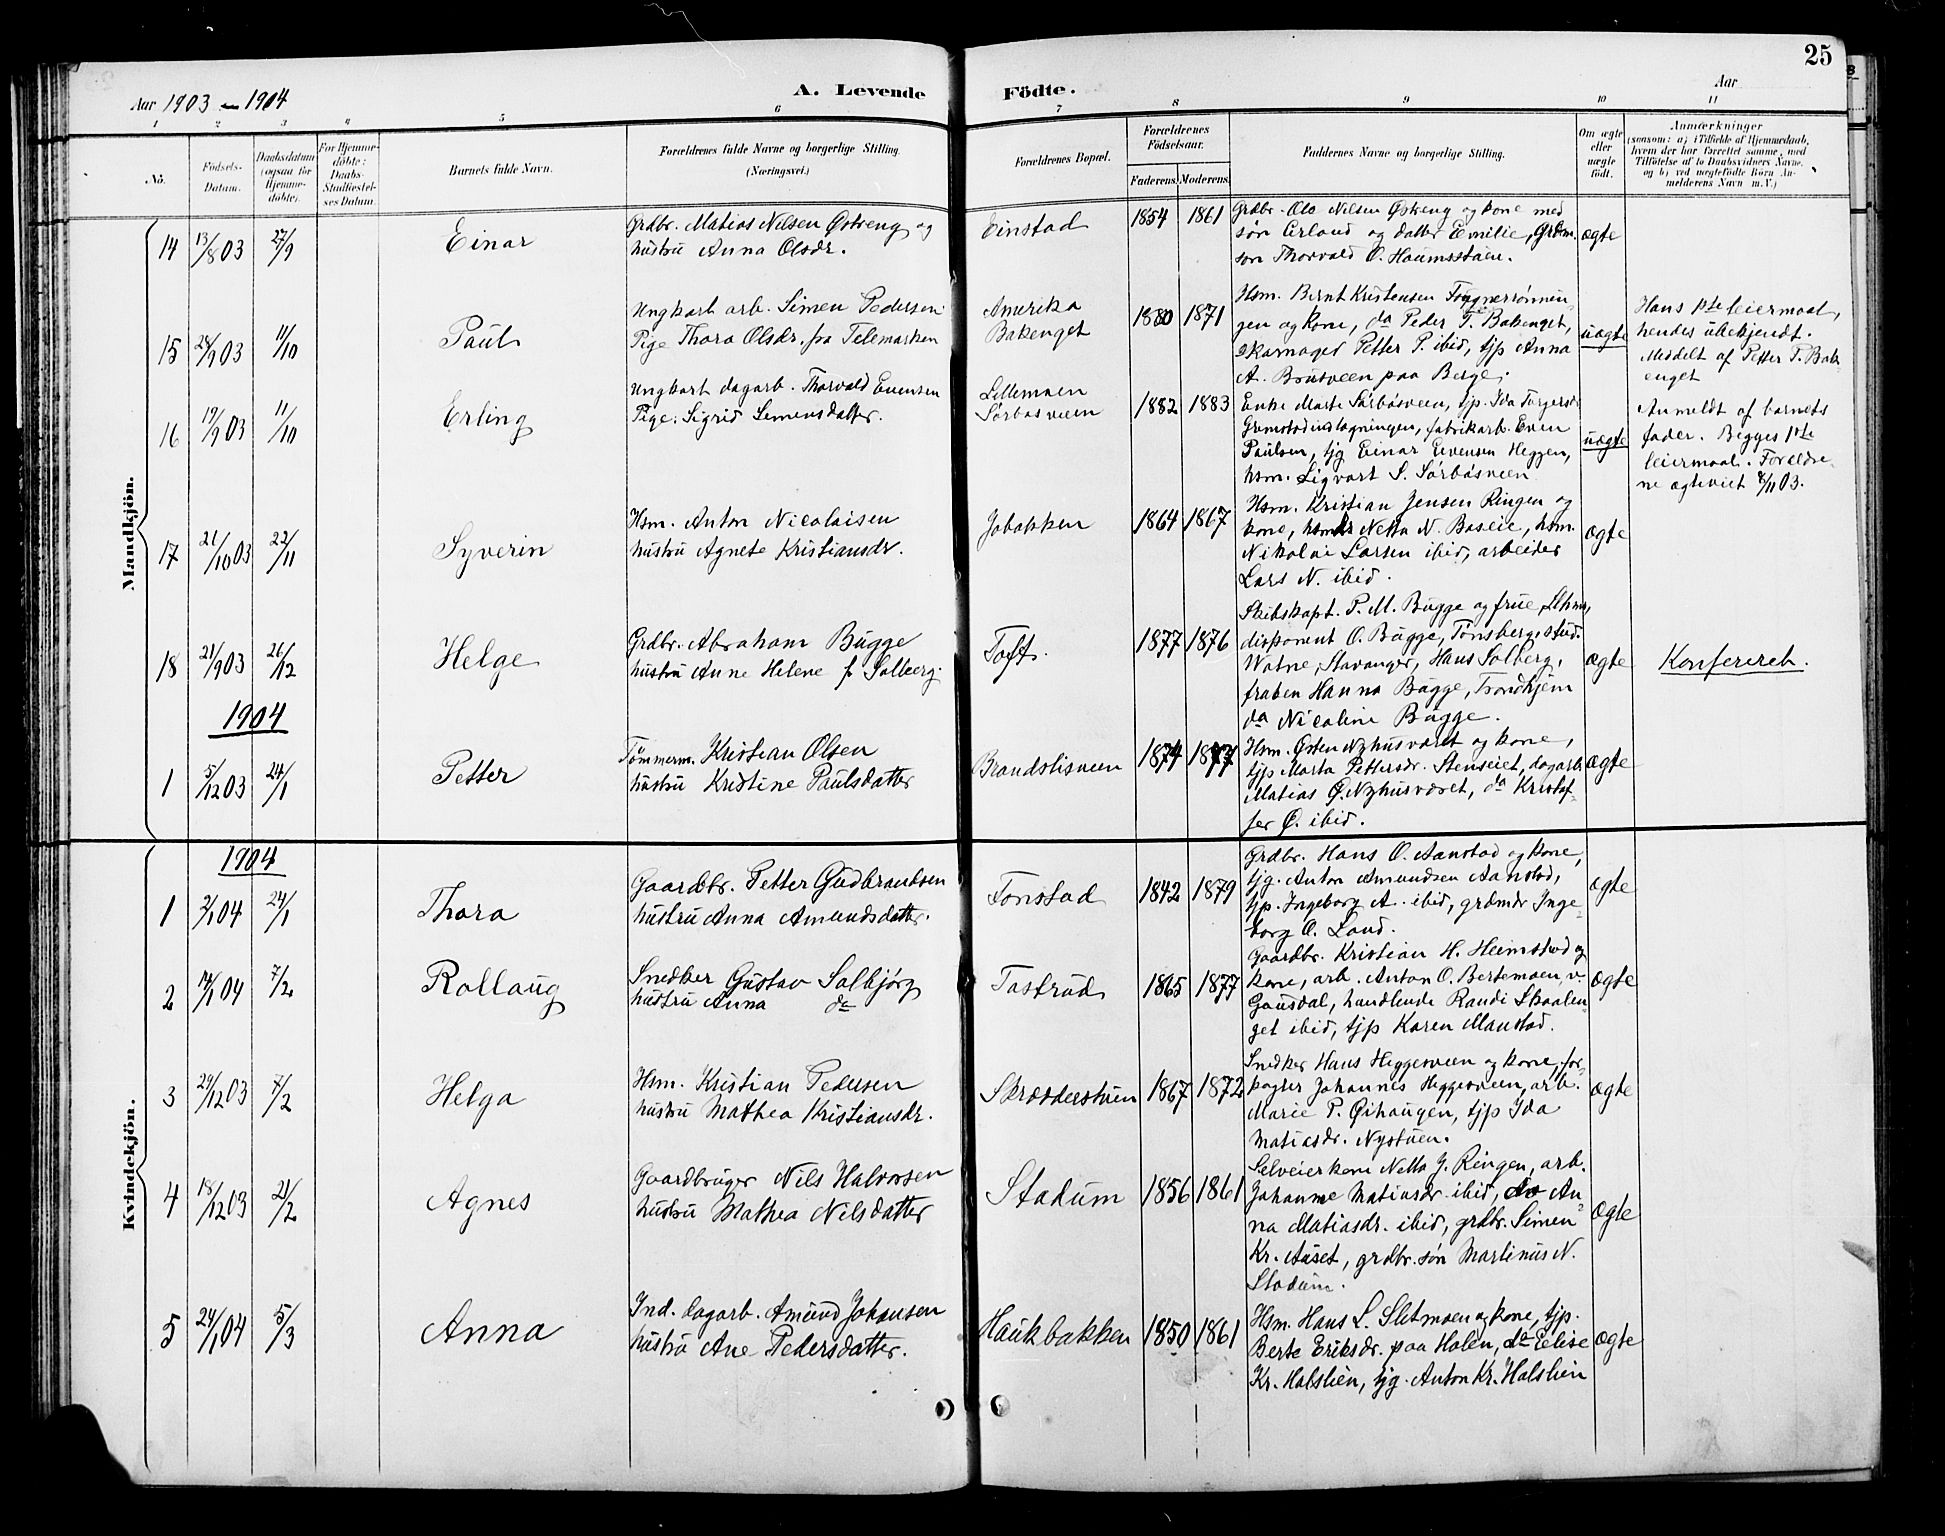 25
Aar 1903 – 1904
A. Levende Födte.
Aar
1 2 3 4 5 6 7 8 9 10 11
No.
Födsels-
Datum.
Daabsdatum
(ogsaa for
Hjemme-
döbte).
For Hjemme-
döbte:
Daabs-
Stadfæstel-
ses Datum.
Barnets fulde Navn.
Forældrenes fulde Navne og borgerlige Stilling.
(Næringsvei.)
Forældrenes Bopæl.
Forældrenes
Födselsaar.
Faderens. Moderens.
Faddernes Navne og borgerlige Stilling.
Om ægte
eller
uægte
födt.
Anmærkninger
(saasom: a) i Tilfælde af Hjemmedaab,
hvem der har forrettet samme, med
Tilföielse af to Daabsvidners Navne,
og b) ved uægtefödte Börn An-
melderens Navn m. V.)
Mandkjön.
14 13/8 03 27/9 Einar
Grdbr. Matias Nilsen Østreng og
hustru Anna Olsdr.
Einstad 1854 1861
Grdbr. Ole Nilsen Østreng og kone med
søn Erland og datter Emilie, Grdm.
søn Thorvald O. Haumsstuen.
ægte
15 28/9 03 11/10 Paul
Ungkarl arb. Simen Pedersen
Pige Thora Olsdr. fra Telemarken
Amerika
Bakenget
1880 1871
Hsm. Bernt Kristensen Fougnerrønnin-
gen og kone, da Peder T. Bakenget,
skomager Petter P. ibid, tjp Anna
A. Brusveen paa Berge.
uægte
Hans 1ste leiermaal,
hendes ubekjendt.
Meddelt af Petter P. Bak-
enget
16 19/9 03 11/10 Erling
Ungkarl dagarb. Thorvald Evensen
Pige: Sigrid Simensdatter.
Lillemoen
Sørbøsveen
1882 1883
Enke Marte Sørbøsveen, tjp. Ida Torgersdr
Gremstadindlagningen, fabrikarb. Even
Paulsen, tjg Einar Evensen Heggen,
hsm. Sigvart S. Sørbøsveen
uægte
Anmeldt af barnets
fader. Begges 1ste
leiermaal. Forældre-
ne ægteviet 8/11 03.
17 21/10 03 22/11 Syverin
Hsm. Anton Nicolaisen
hustru Agnete Kristiansdr.
Jobakken 1864 1867
Hsm. Kristian Jensen Ringen og
kone, Netta N. Baseie, hsm.
Nikolai Larsen ibid, arbeider
Lars N. ibid.
ægte
18 21/9 03 26/12 Helge
Grdbr. Abraham Bugge
hustru Anne Helene f. Solberg
Toft. 1877 1876
Skibskapt. P. M. Bugge og frue,
disponent O. Bugge, Tønsberg, stud.
Watne, Stavanger, Hans Solberg,
frøken Hanna Bugge, Trondhjem
da Nicoline Bugge.
ægte
Konfereret.
1904
1 5/12 03 24/1 Petter
Tømmerm. Kristian Olsen
hustru Kristine Paulsdatter
Brandslisveen 1874 1877
Hsm. Østen Nyhusværet og kone,
tjp Marta Pettersdr. Stenseiet, dagarb
Matias Ø. Nyhusværet, da Kristof-
fer Ø. ibid.
ægte
Kvindekjön.
1904
1 2/1 04 24/1 Thora
Gaardbr. Petter Gudbrandsen
hustru Anna Amundsdatter.
Fonstad 1842 1879
Grdbr. Hans O. Aanstad og kone,
tjg. Anton Amundsen Aanstad,
tjp. Ingeborg A. ibid, grdmdr Inge-
borg O. Land.
ægte
2 14/1 04 7/2 Rollaug
Snedker Gustav Solbjørg
hustru Anna da
Tastrud 1865 1877
Gaardbr. Kristian H. Heimstad og
kone, arb. Anton O. Bertemoen, v.
Gausdal, handlende Randi Skaalen-
get ibid, tjp Karen Maustad.
ægte
3 29/12 03 7/2 Helga
Hsm. Kristian Pedersen
hustru Mathea Kristiansdr.
Skrædderstuen 1867 1872
Snedker Hans Heggesveen og kone, for-
pagter Johannes Heggesveen, arb.
Marie P. Øihaugen, tjp Ida
Matiasdr. Nystuen.
ægte
4 18/12 03 21/2 Agnes
Gaardbruger Nils Halvorsen
hustru Mathea Nilsdatter
Stadum 1856 1861
Selveierkone Netta J. Ringen, arb.
Johanne Matiasdr. ibid, An-
na Matiasdr. ibid, grdbr. Simen
Kr. Auset, grdbr. søn Martinus N.
Stadum.
ægte
5 24/1 04 5/3 Anna
Ind. dagarb. Amund Johansen
hustru Ane Pedersdatter.
Haukbakken 1850 1861
Hsm. Hans L. Sletmoen og kone, tjp.
Berte Eriksdr. paa Holen, da Eelise
Kr. Holslien, tjg. Anton Kr. Holslien
ægte